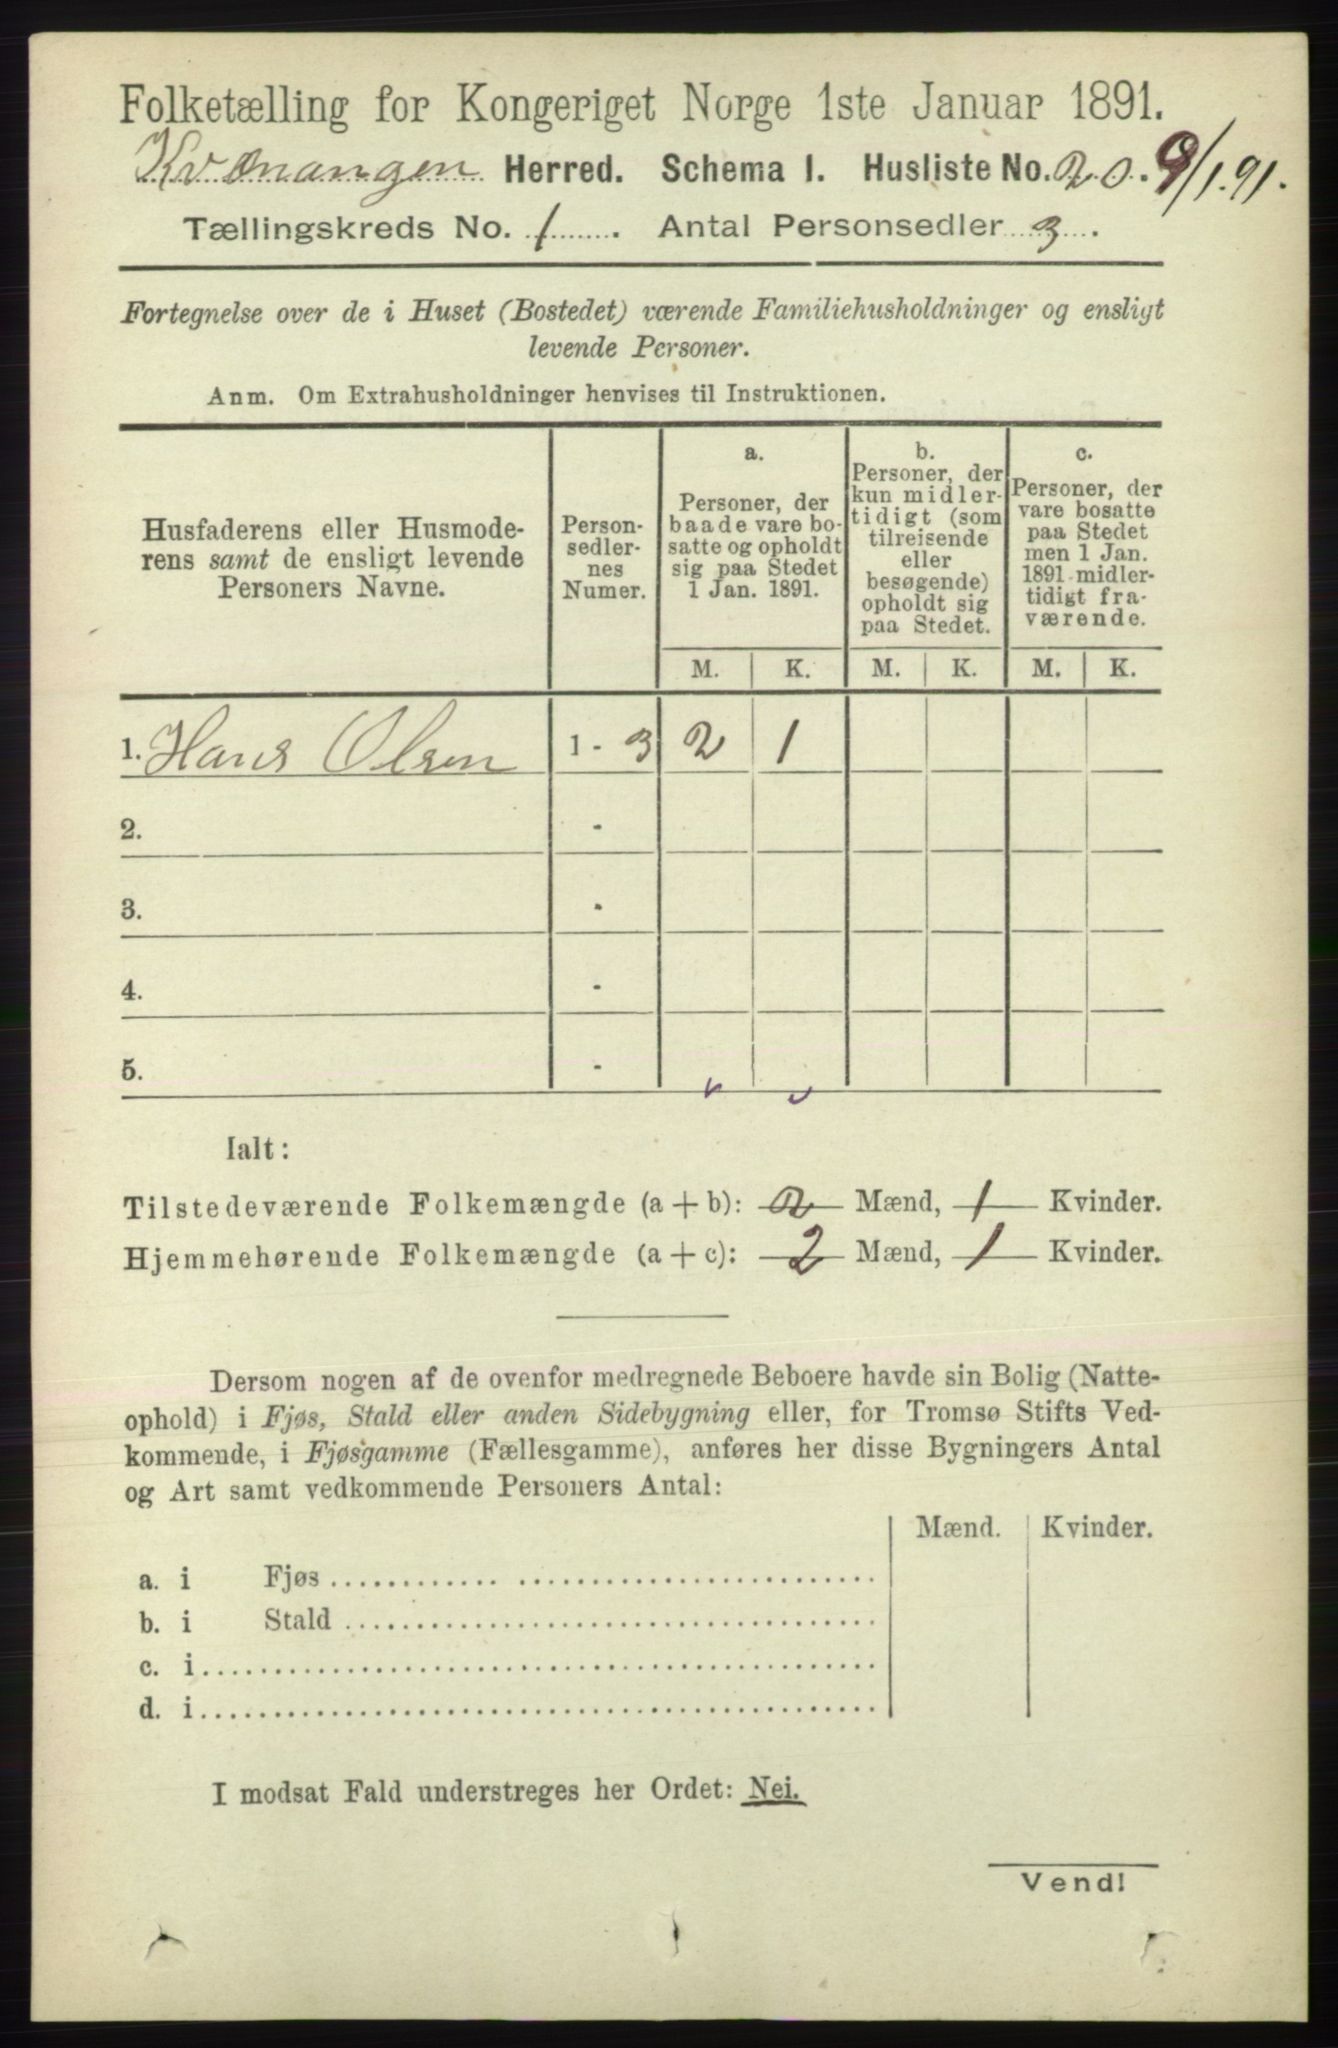 Folketælling for Kongeriget Norge 1ste Januar 1891.
Kvænangen Herred. Schema I. Husliste No. 20. 9/1.91.
Tællingskreds No. 1. Antal Personsedler 3.
Fortegnelse over de i Huset (Bostedet) værende Familiehusholdninger og ensligt
levende Personer.
Anm. Om Extrahusholdninger henvises til Instruktionen.
Husfaderens eller Husmode-
rens samt de ensligt levende
Personers Navne.
Person-
sedler-
nes
Numer.
a.
Personer, der
baade vare bo-
satte og opholdt
sig paa Stedet
1 Jan. 1891.
b.
Personer, der
kun midler-
tidigt (som
tilreisende
eller
besøgende)
opholdt sig
paa Stedet.
c.
Personer, der
vare bosatte
paa Stedet
men 1 Jan.
1891 midler-
tidigt fra-
værende.
M. K. M. K. M. K.
1. Hans Olsen 1 - 3 2 1
2. -
3. -
4. -
5. -
Ialt:
Tilstedeværende Folkemængde (a + b): 2 Mænd, 1 Kvinder.
Hjemmehørende Folkemængde (a + c): 2 Mænd, 1 Kvinder.
Dersom nogen af de ovenfor medregnede Beboere havde sin Bolig (Natte-
ophold) i Fjøs, Stald eller anden Sidebygning eller, for Tromsø Stifts Ved-
kommende, i Fjøsgamme (Fællesgamme), anføres her disse Bygningers Antal
og Art samt vedkommende Personers Antal:
Mænd. Kvinder.
a. i Fjøs
b. i Stald
c. i
d. i
I modsat Fald understreges her Ordet: Nei.
Vend!